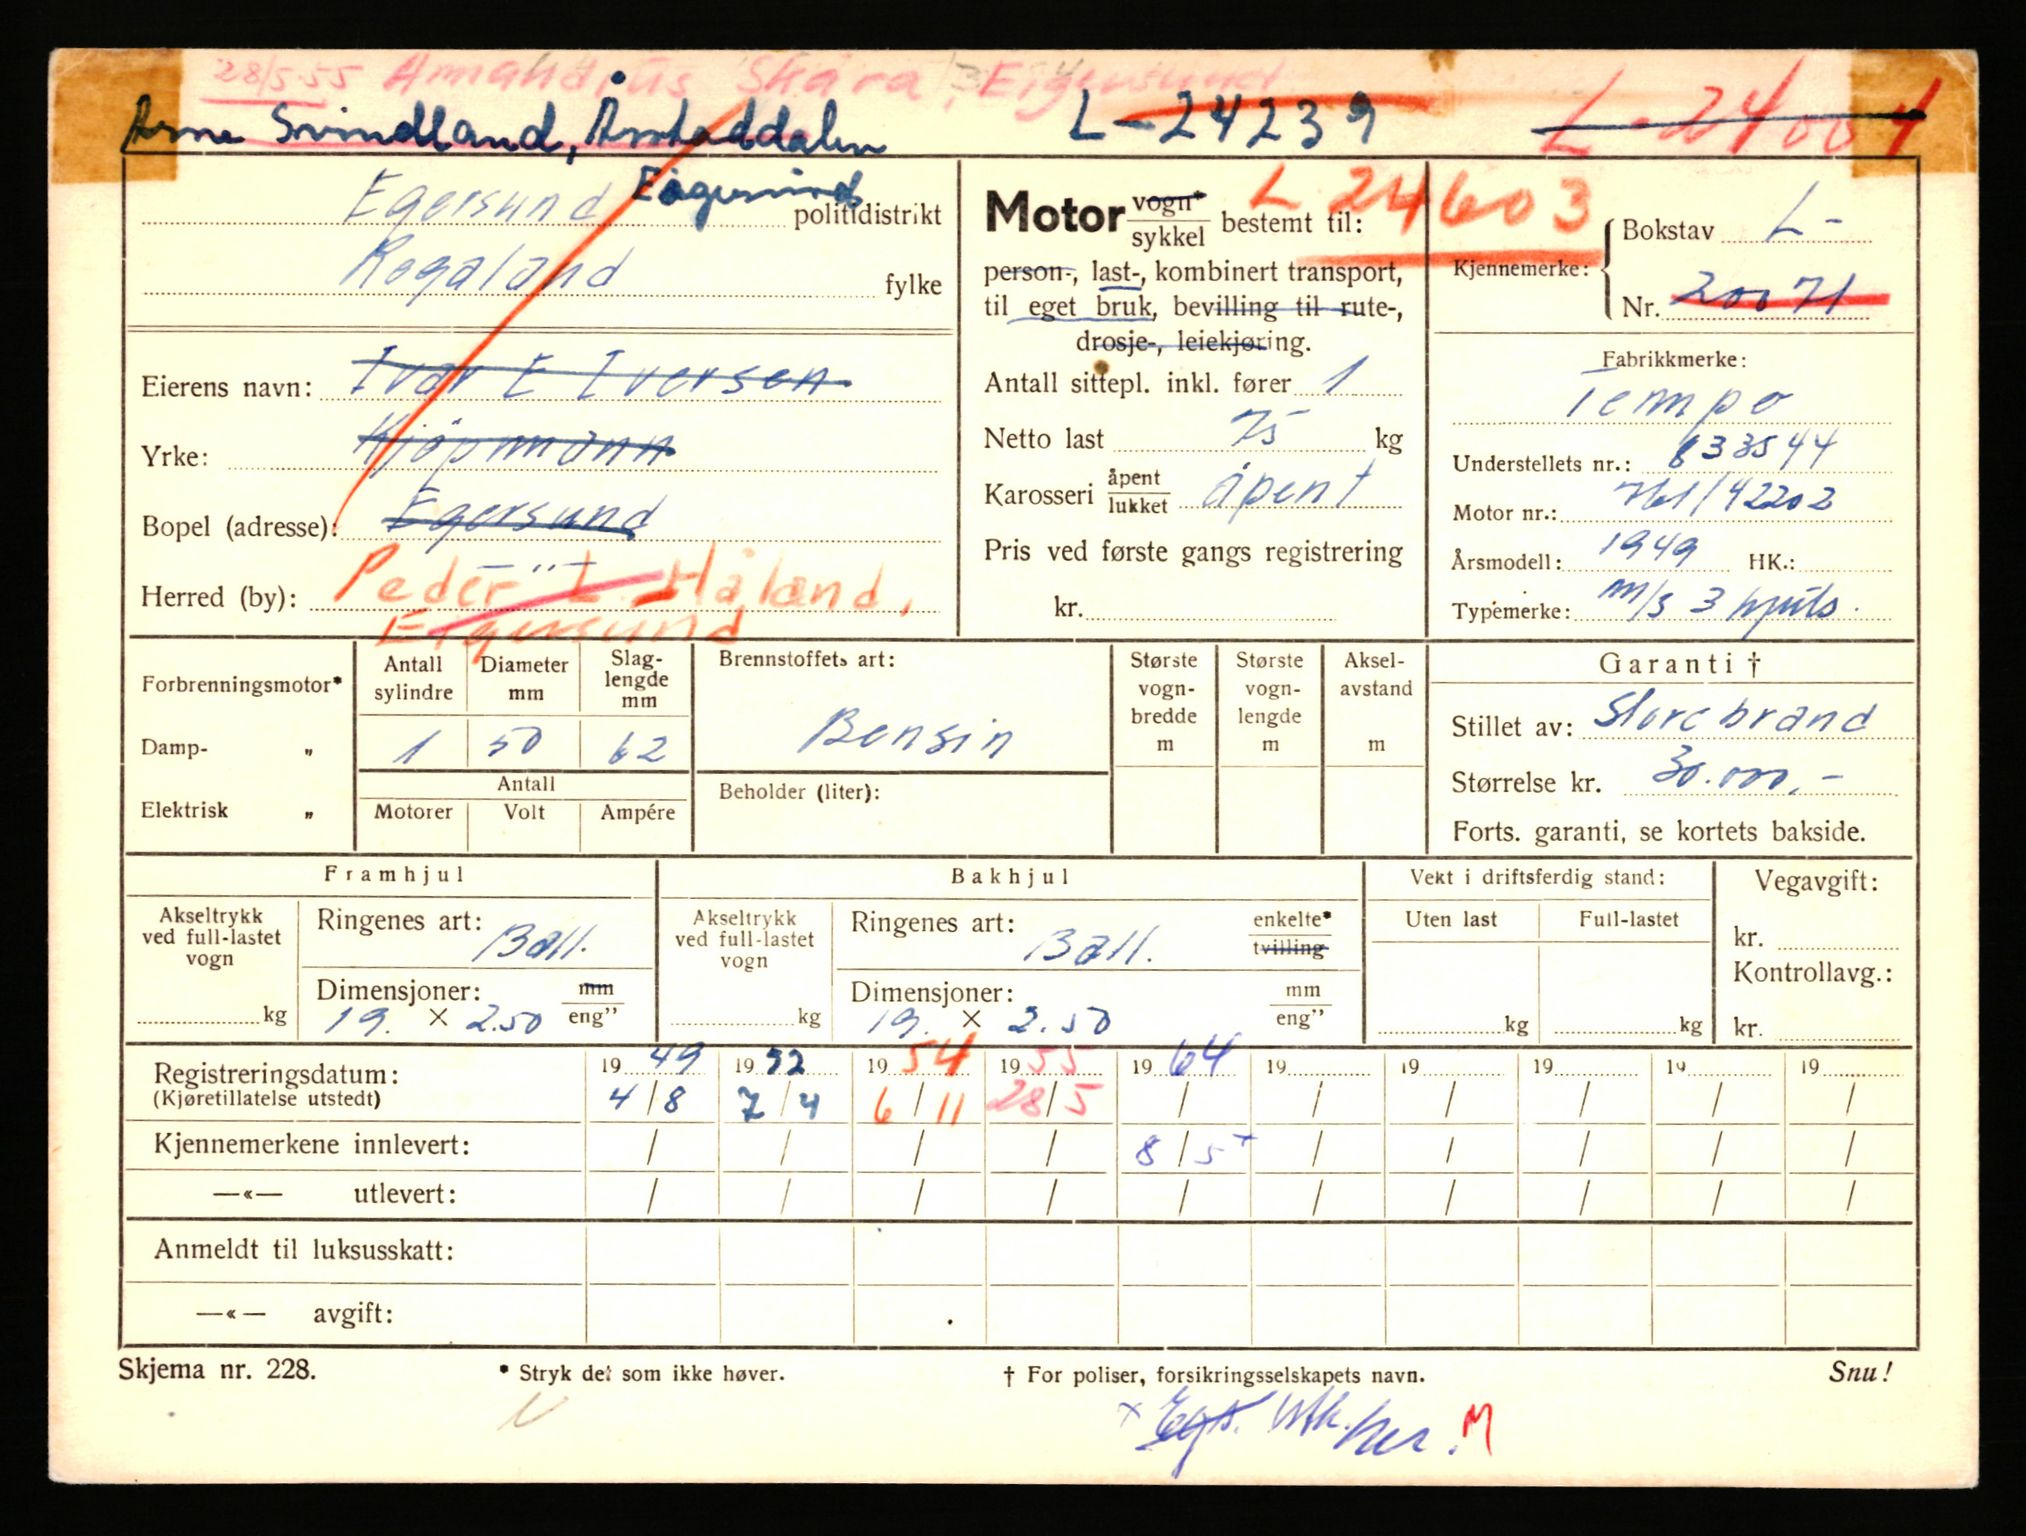 28/5-55 Amandus Skåra, Eigersund
Arne Svindland, Årstaddalen L-24239 L-24004
Eigersund
Egersund politidistrikt
Rogaland fylke
Eierens navn: Ivar E Iversen
Yrke: Kjøpmann
Bopel (adresse): Egersund
Herred (by): — " —
Peder L. Håland,
Eigersund
Motor vogn* sykkel bestemt til:
L 24603
person-, last-, kombinert transport,
til eget bruk, bevilling til rute-,
drosje-, leiekjøring.
Antall sittepl. inkl. fører 1
Netto last 75 kg
Karosseri åpent lukket åpent
Pris ved første gangs registrering
kr.
Kjennemerke: Bokstav L-
Nr. 20071
Fabrikkmerke:
Tempo
Understellets nr.: 833544
Motor nr.: 761/42202
Årsmodell: 1949 HK.:
Typemerke: m/s 3 hjuls.
Forbrenningsmotor*
Damp- "
Elektrisk "
Antall sylindre Diameter mm Slag-lengde mm
1 50 62
Antall
Motorer Volt Ampére
Brennstoffets art:
Bensin
Beholder (liter):
Største vogn-bredde m
Største vogn-lengde m
Aksel-avstand m
Garanti †
Stillet av: Storebrand
Størrelse kr. 30.000,-
Forts. garanti, se kortets bakside.
Framhjul
Akseltrykk ved full-lastet vogn
kg
Ringenes art: Ball.
Dimensjoner: mm eng"
19. × 2.50
Bakhjul
Akseltrykk ved full-lastet vogn
kg
Ringenes art: Ball. enkelte* tvilling
Dimensjoner: mm eng"
19. × 2.50
Vekt i driftsferdig stand:
Uten last Full-lastet
kg kg
Vegavgift:
kr.
Kontrollavg.:
kr.
Registreringsdatum: 1949 1952 1954 1955 1964 19 19 19 19 19
(Kjøretillatelse utstedt) 4/8 7/4 6/11 28/5 / / / / / /
Kjennemerkene innlevert: / / / / 8/5 × / / / / /
—«— utlevert: / / / / / / / / / /
Anmeldt til luksusskatt:
—«— avgift:
Skjema nr. 228. * Stryk det som ikke høver. † For poliser, forsikringsselskapets navn. Snu!
× M